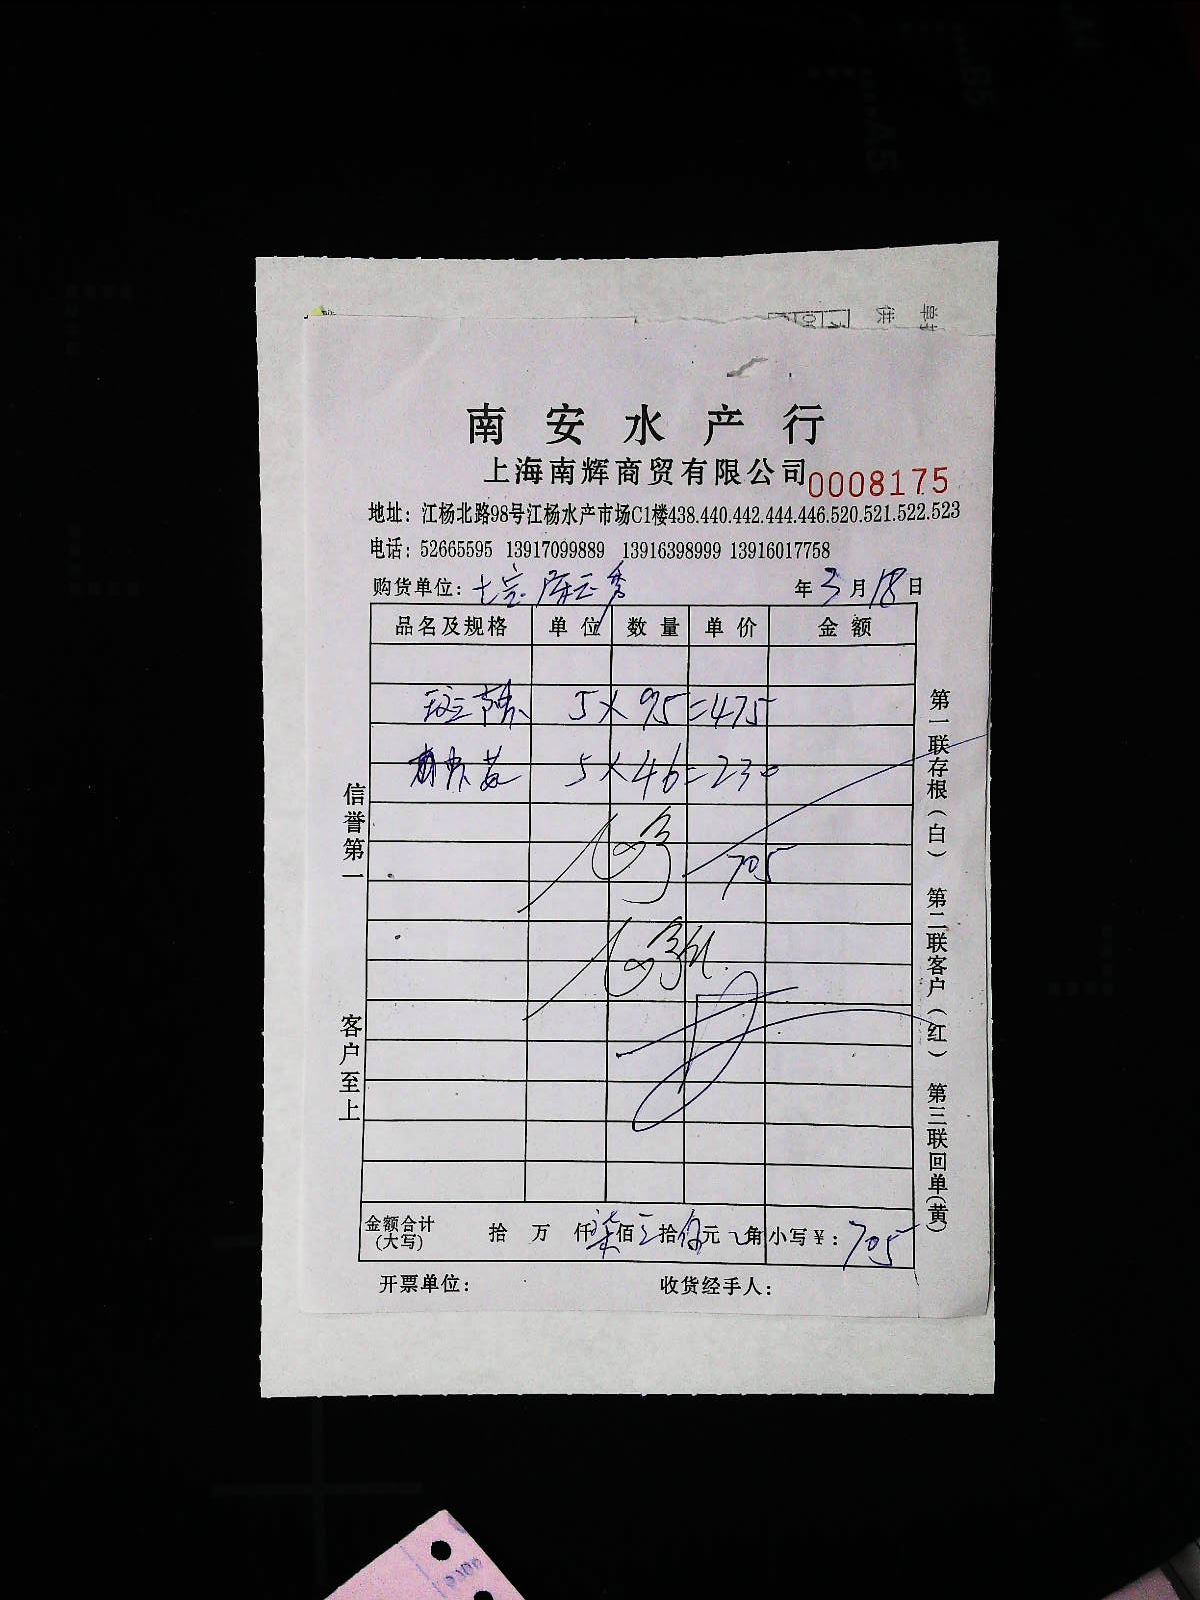 南安水产行
上海南辉商贸有限公司 0008175
地址：江杨北路98号江杨水产市场C1楼438.440.442.444.446.520.521.522.523
电话：52665595 13917099889 13916398999 13916017758
购货单位：七宝 年3月18日
品名及规格 单位 数量 单价 金额
5×95=475
5×46=230
705
金额合计(大写) 拾 万 仟柒佰 拾伍元 角 小写￥：705
开票单位： 收货经手人：
信誉第一 客户至上
第一联存根(白) 第二联客户(红) 第三联回单(黄)